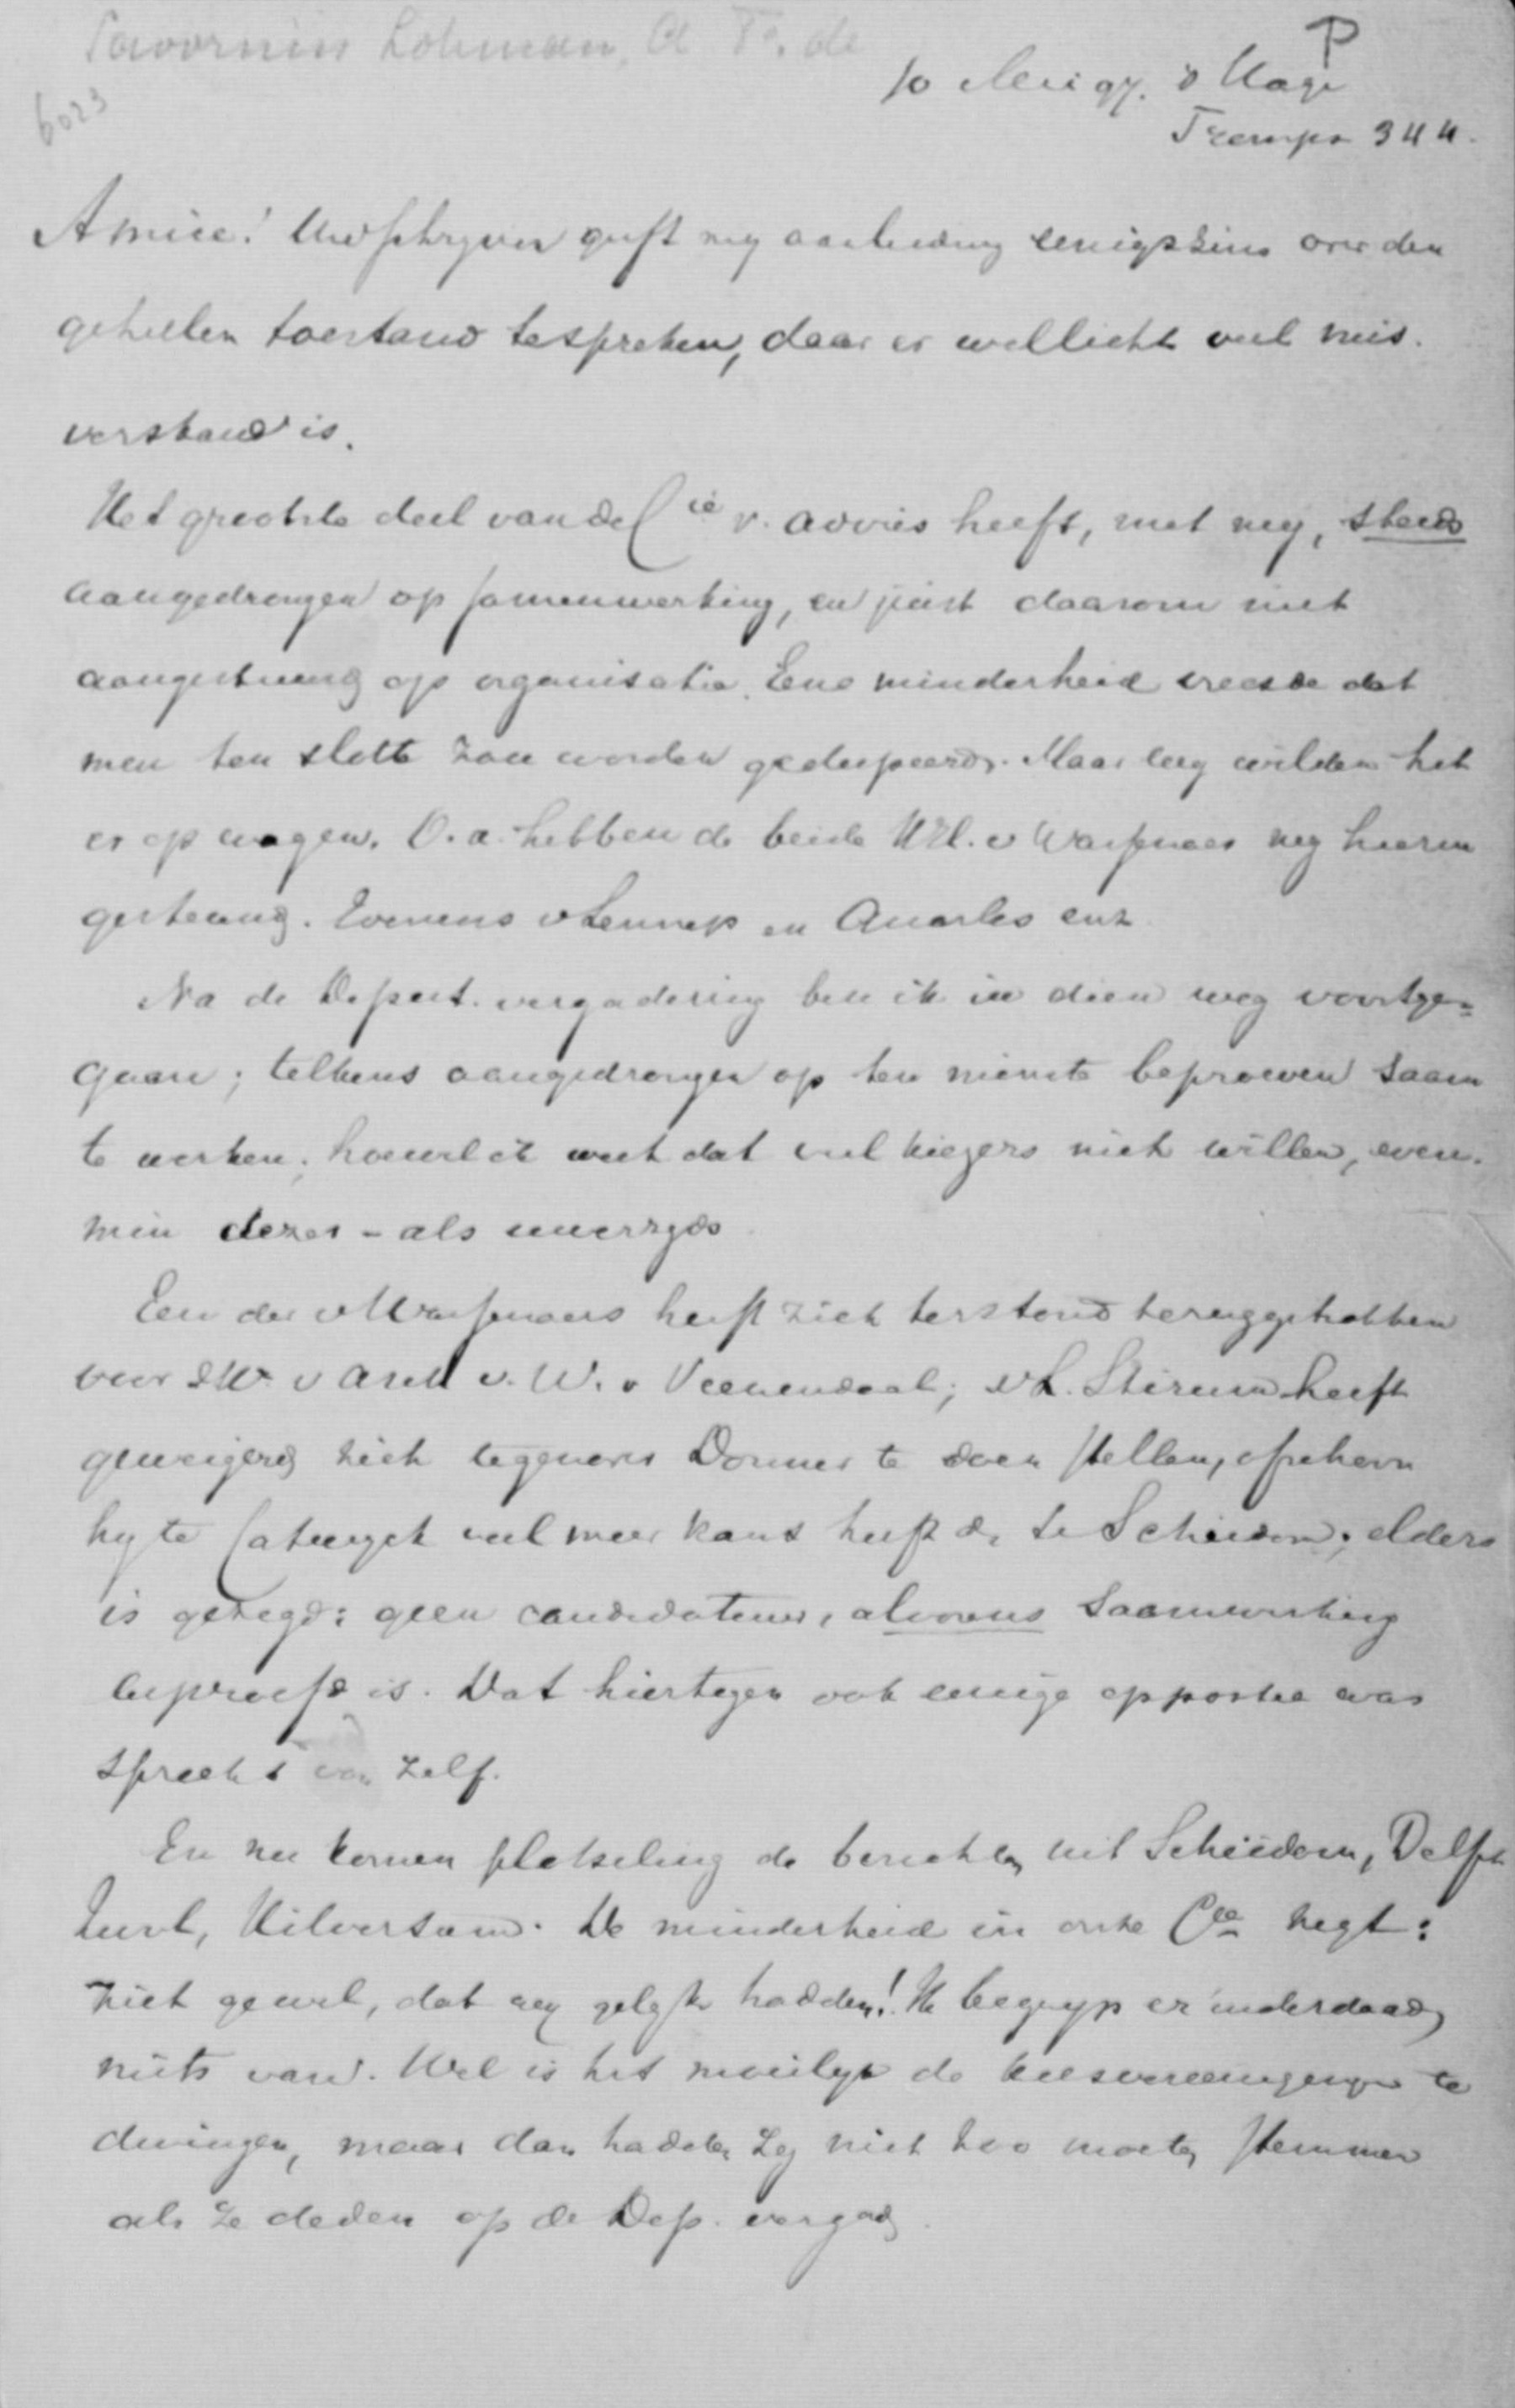 Savornin Lohman, A F. de
P
6023
10 Mei 97. 's Hage
Trompstr 344.
Amice! Uw schryven geeft my aanleiding eenigszins over den
geheelen toestand te spreken, daar er wellicht veel mis-
verstand is.
Het grootste deel van de Cie v. advies heeft, met my, steeds
aangedrongen op samenwerking, en juist daarom niet
aangestuurd op organisatie. Eene minderheid vreesde dat
men ten slotte zou worden gedupeerd. Maar wy wilden het
er op wagen. O.a. hebben de beide HH. v Wassenaer my hierin
gesteund. Evenens v Lennep en Quarles enz.
Na de Deput. vergadering ben ik in dien weg voortge-
gaan; telkens aangedrongen op ten minste beproeven saam
te werken; hoewel ik weet dat veel kiezers niet willen, even-
min dezer- als uwerzyds.
Een der v Wassenaers heeft zich terstond teruggetrokken
voor v. W. v Veenendaal; v L. Stirum heeft
geweigerd zich tegenover Donner te doen stellen, ofschoon
hy te Katwyck veel meer kans heeft dan te Schiedam; elders
is gezegd: geen candidaturen, alvorens saamwerking
beproefd is. Dat hiertegen ook eenige oppositie was
spreekt van zelf.
En nu komen plotseling de berichten uit Schiedam, Delft
Hilversum. De minderheid in onze Cie zegt:
ziet ge wel, dat wy gelyk hadden! Ik begryp er inderdaad
niets van. Wel is het moeilyk de kiesvereenigingen te
dwingen, maar dan hadden zy niet zoo moeten stemmen
als ze deden op de Dep. vergad.